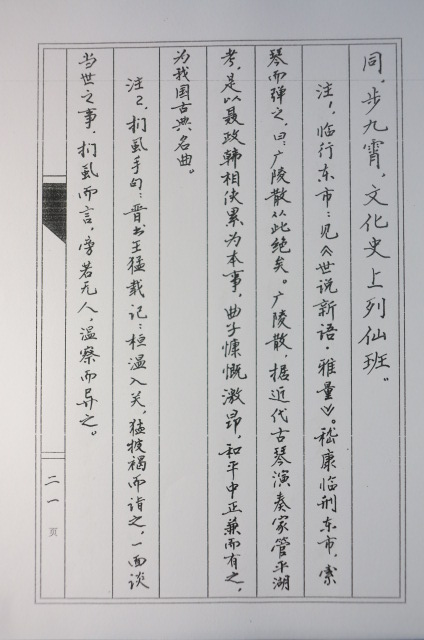 同，步九霄，文化史上列仙班。
注1，临行东市：见《世说新语·雅量》。嵇康临刑东市，索
琴而弹之，曰：广陵散从此绝矣。广陵散，据近代古琴演奏家管平湖
考，是以聂政韩相侠累为本事，曲子慷慨激昂，和平中正兼而有之，
为我国古典名曲。
注2，扪虱手句：晋书王猛载记：桓温入关，猛披褐而诣之，一面谈
当世之事，扪虱而言，旁若无人，温察而异之。
二一页